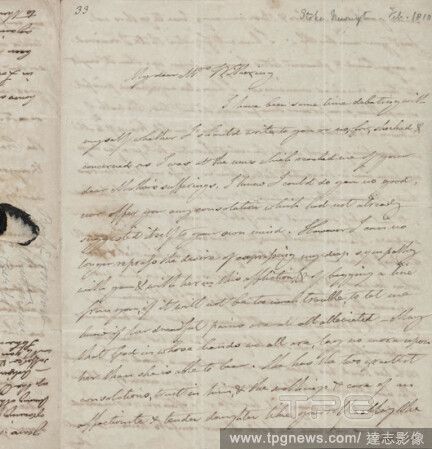 33
Stoke Newington Feb. 1810
My dear Mrs
I have been some time debating with
myself whether I should write to you or no, for, shocked &
concerned as I was at the news which reached me of your
dear Mother's sufferings, I knew I could do you no good,
nor offer you any consolation which had not already
suggested itself to your own mind. However I can no
longer repress the desire of expressing my deep sympathy
with you & with her in this affliction, & of begging a line
from you, if it will not be too much trouble, to tell me
how her dreadful pains are at all alleviated
that God in whose hands we all are, lay no more upon
her than she is able to bear. She has the two greatest
consolations, trust in him, & the soothings & care of an
affectionate & tender daughter like yourself. May the
TPG
www.tpgnews.com / 達志影像